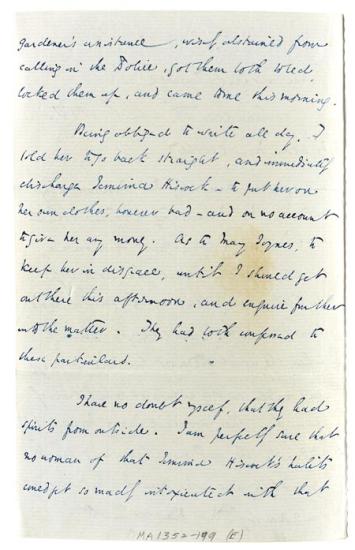 gardener's assistance, wisely abstained from
calling in the Police, got them both to bed,
locked them up, and came here this morning.
Being obliged to write all day, I
told her to go back straight, and immediately
discharge Jemima Hiscock – to put her on
her own clothes, however bad – and on no account
to give her any money. As to Mary Joynes, to
keep her in disgrace, until I should get
out there this afternoon, and enquire further
into the matter. They had both confessed to
these particulars.
I have no doubt myself, that they had
spirits from outside. I am perfectly sure that
no woman of that Jemima Hiscock's habits
could get so madly intoxicated with that
MA 1352-199 (E)